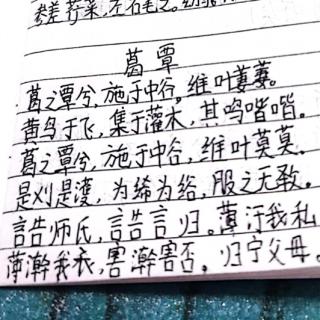 参差荇菜,左右芼之。
葛覃
葛之覃兮,施于中谷。维叶萋萋。
黄鸟于飞,集于灌木,其鸣喈喈。
葛之覃兮,施于中谷,维叶莫莫。
是刈是濩,为𫄨为绤,服之无斁。
言告师氏,言告言归。薄汙我私
薄澣我衣,害澣害否。归宁父母。